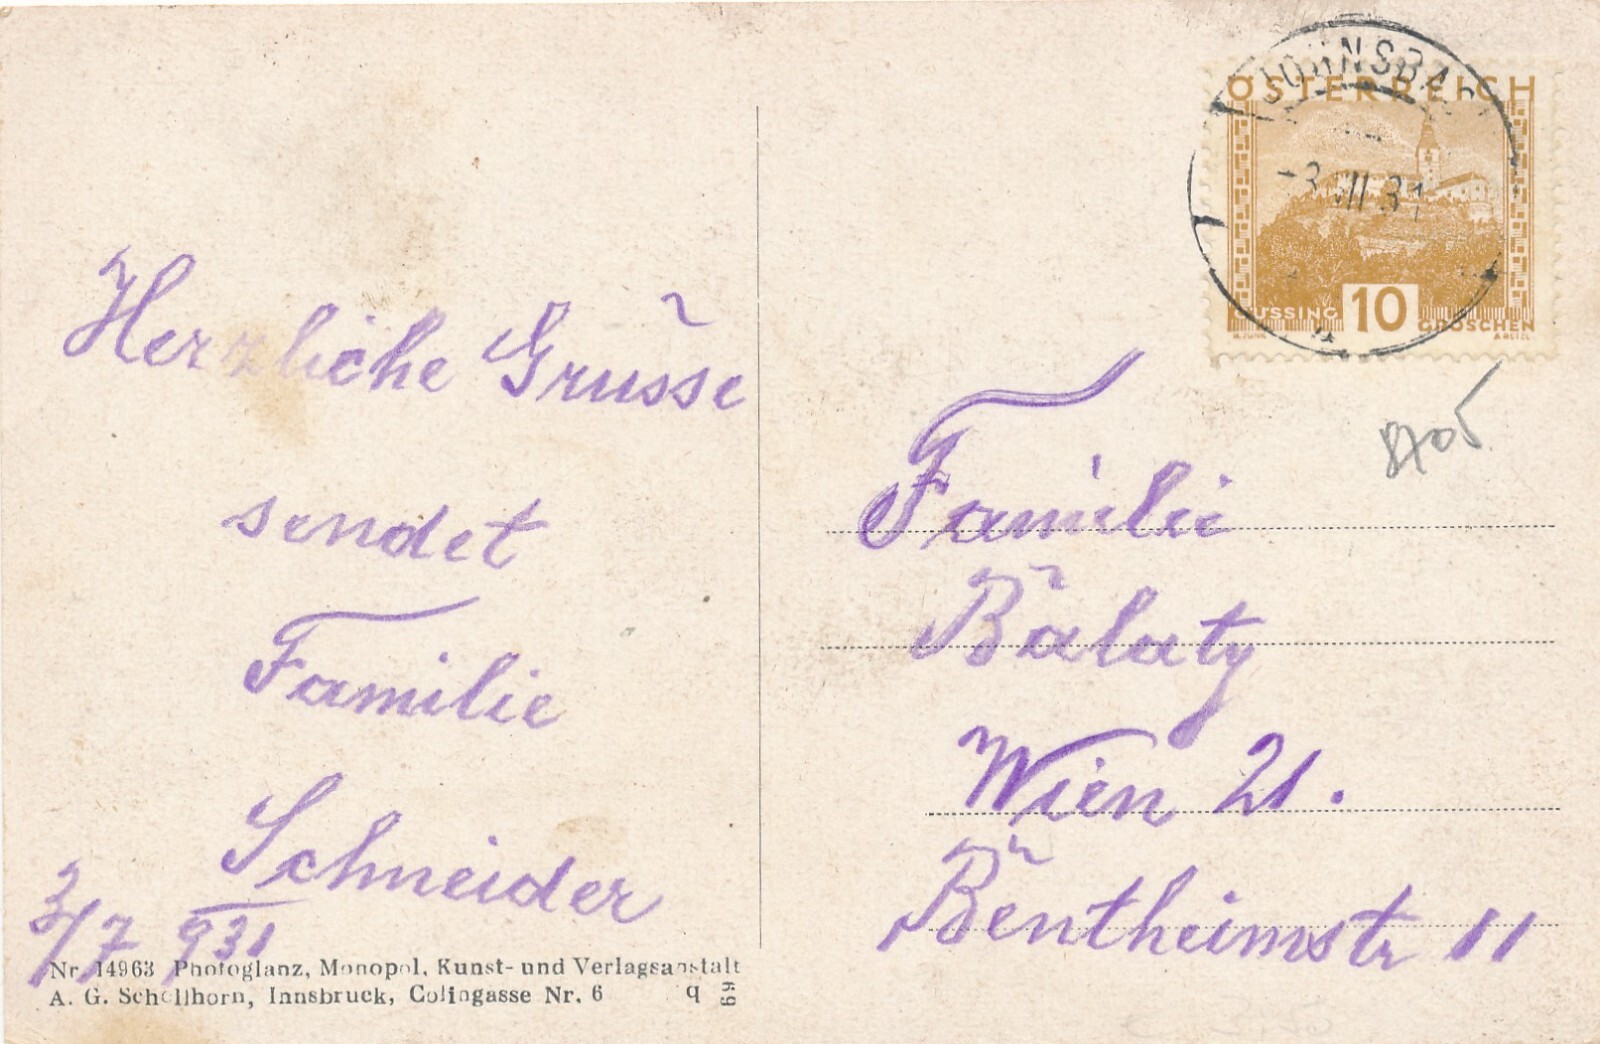 Herzliche Grüsse
sendet
Familie
Schneider
3/7 931
Nr. 14963 Photoglanz, Monopol, Kunst- und Verlagsanstalt
A. G. Schöllhorn, Innsbruck, Colingasse Nr. 6 q
ÖSTERREICH
GÜSSING 10 GROSCHEN
JOHNSBA
-3 VII 31
8705
Familie
Bălaty
Wien 21.
Bentheimstr 11